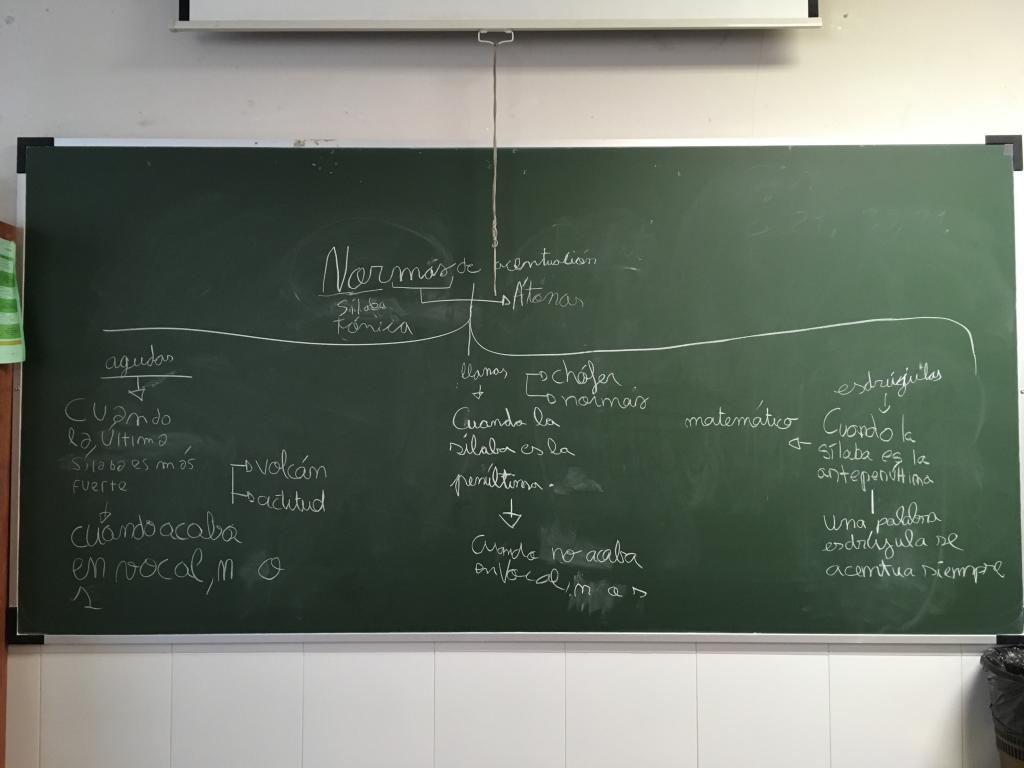 Normas de acentuación
Sílaba
tónica
Átonas
agudas
Cuando
la última
sílaba es más
fuerte
volcán
actitud
cuándo acaba
en vocal, n o
s
llanas
chófer
normas
Cuando la
sílaba es la
penultima.
Cuando no acaba
en vocal, n o s
esdrújulas
matemático
Cuando la
sílaba es la
antepenúltima
una palabra
esdrújula se
acentua siempre